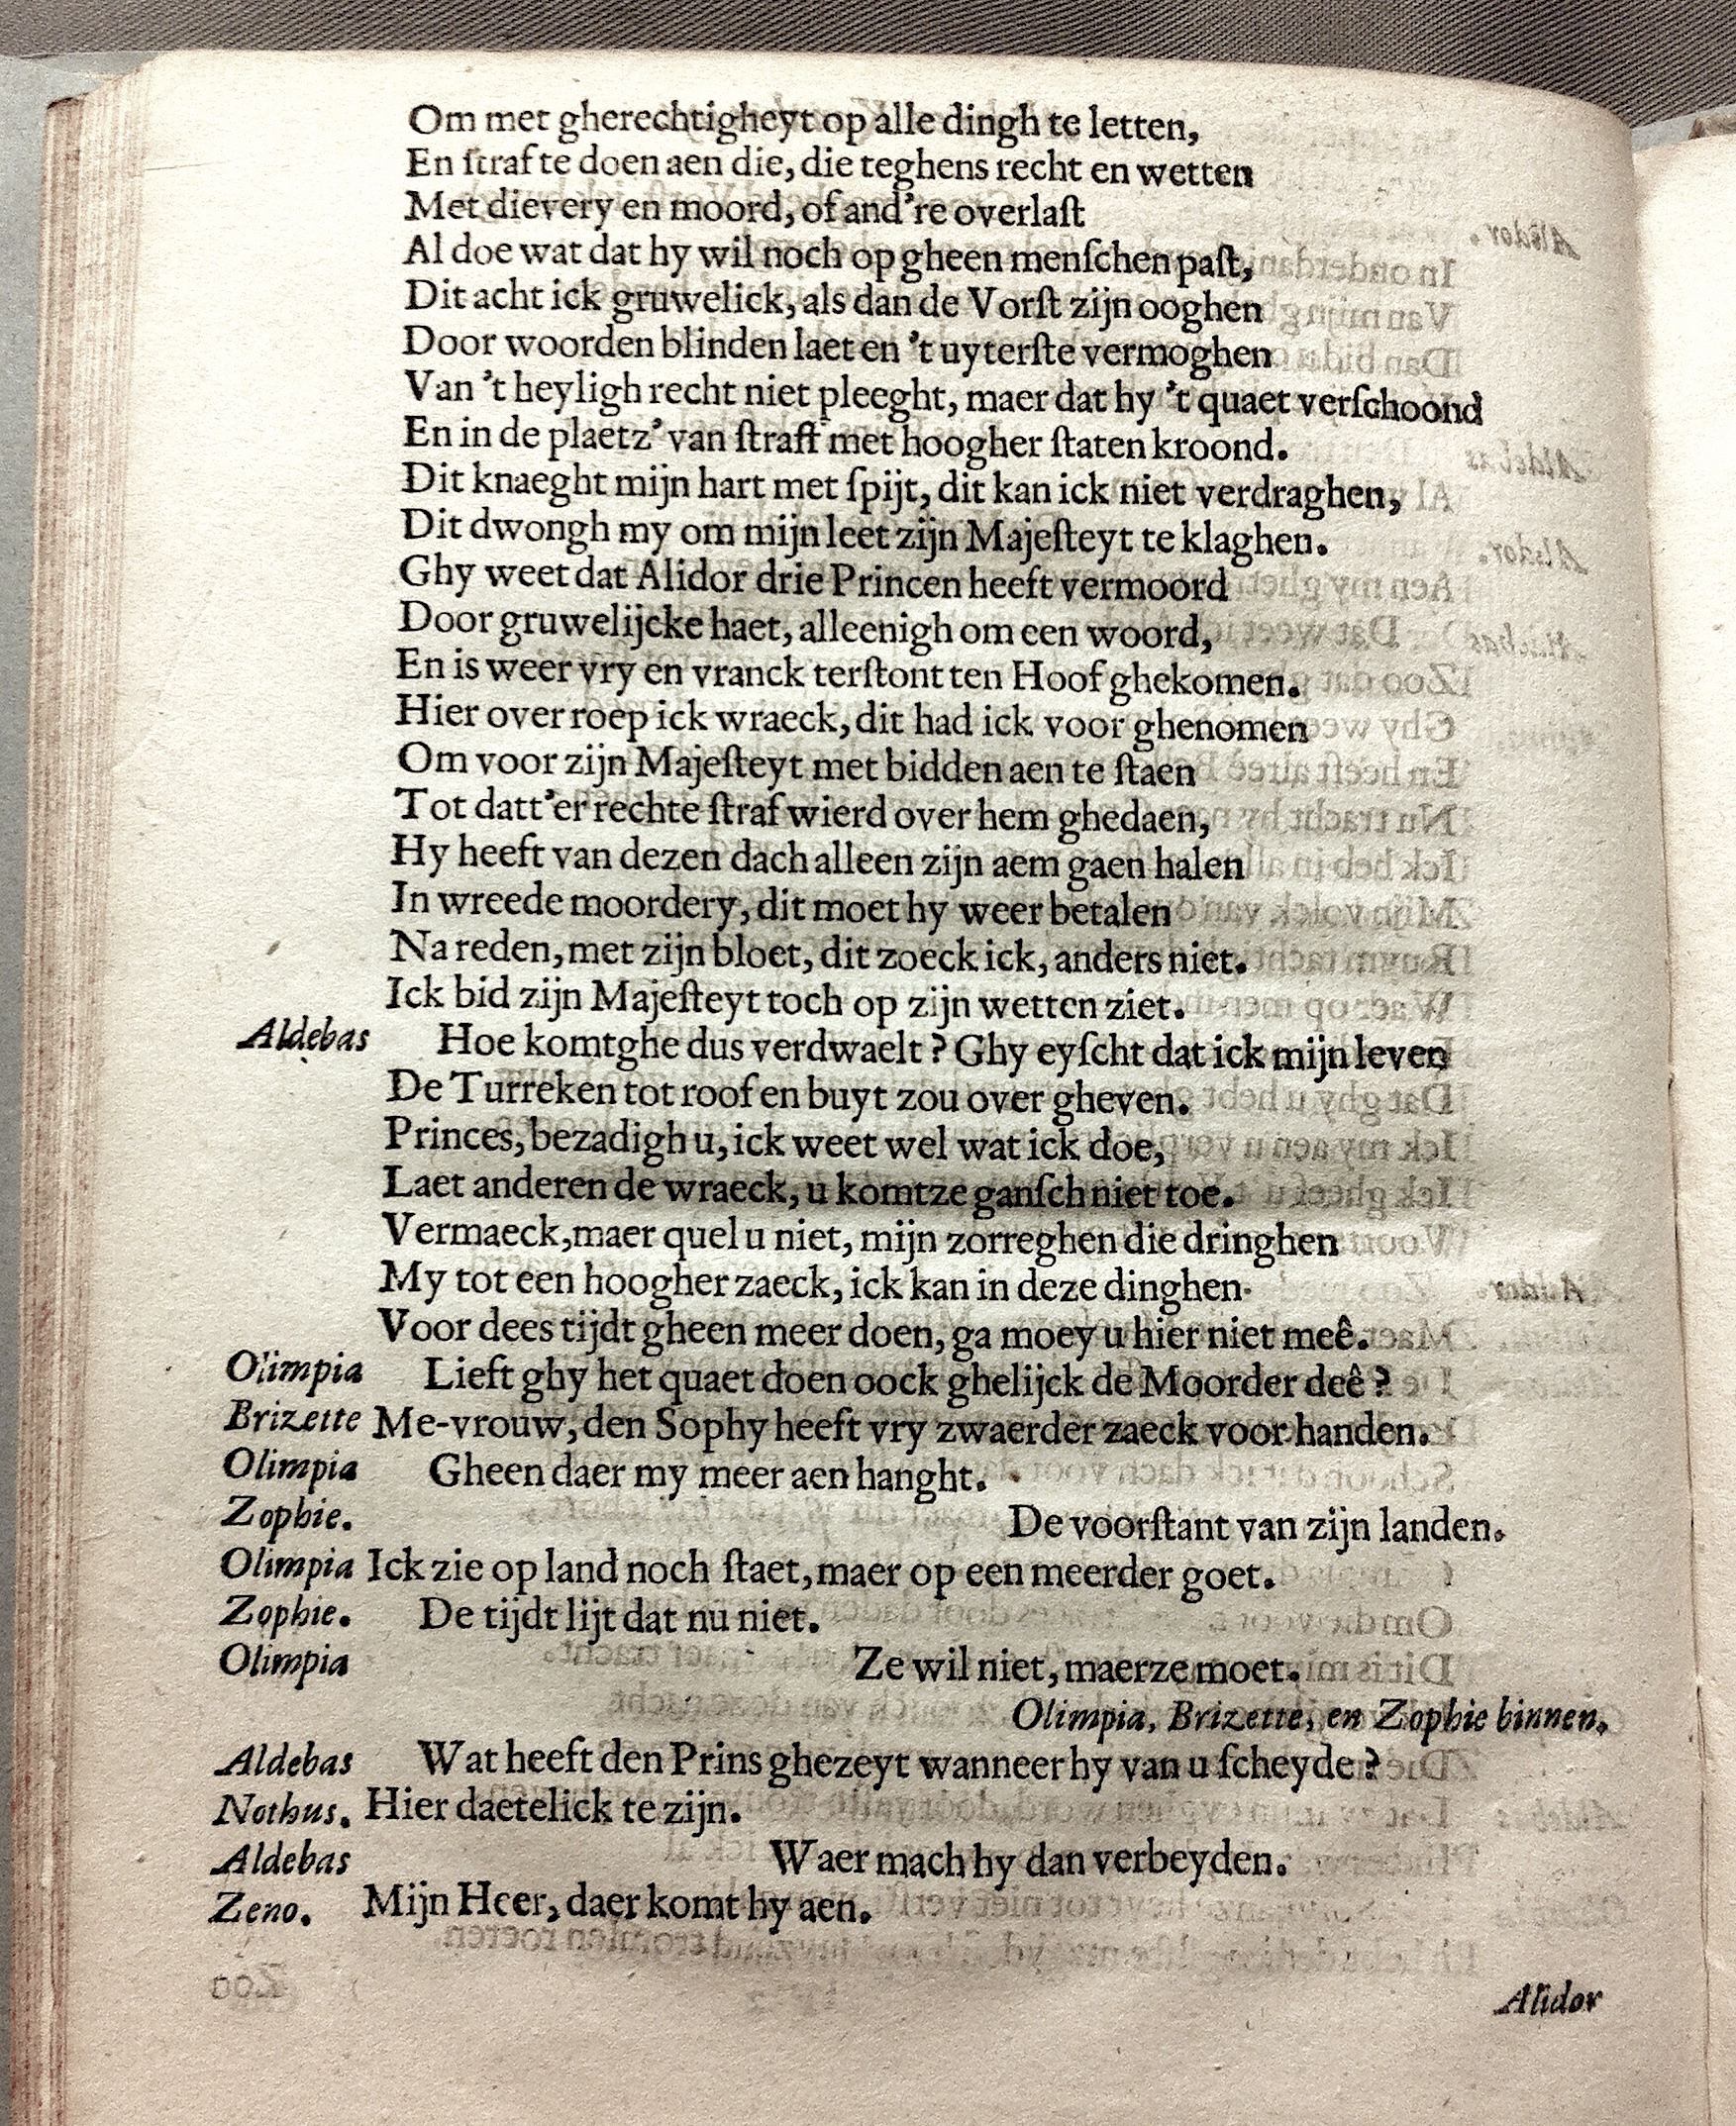 Om met gherechtigheyt op alle dingh te letten,
En ſtraf te doen aen die, die teghens recht en wetten
Met dievery en moord, of and’re overlaſt
Al doe wat dat hy wil noch op gheen menſchen paſt,
Dit acht ick gruwelick, als dan de Vorſt zijn ooghen
Door woorden blinden laet en ’t uyterſte vermoghen
Van ’t heyligh recht niet pleeght, maer dat hy ’t quaet verſchoond
En in de plaetz’ van ſtraff met hoogher ſtaten kroond.
Dit knaeght mijn hart met ſpijt, dit kan ick niet verdraghen,
Dit dwongh my om mijn leet zijn Majeſteyt te klaghen.
Ghy weet dat Alidor drie Princen heeft vermoord
Door gruwelijcke haet, alleenigh om een woord,
En is weer vry en vranck terſtont ten Hoof ghekomen.
Hier over roep ick wraeck, dit had ick voor ghenomen
Om voor zijn Majeſteyt met bidden aen te ſtaen
Tot datt’er rechte ſtraf wierd over hem ghedaen,
Hy heeft van dezen dach alleen zijn aem gaen halen
In wreede moordery, dit moet hy weer betalen
Na reden, met zijn bloet, dit zoeck ick, anders niet.
Ick bid zijn Majeſteyt toch op zijn wetten ziet.
Aldebas Hoe komtghe dus verdwaelt? Ghy eyſcht dat ick mijn leven
De Turreken tot roof en buyt zou over gheven.
Princes, bezadigh u, ick weet wel wat ick doe,
Laet anderen de wraeck, u komtze ganſch niet toe.
Vermaeck, maer quel u niet, mijn zorreghen die dringhen
My tot een hoogher zaeck, ick kan in deze dinghen
Voor dees tijdt gheen meer doen, ga moey u hier niet meê.
Olimpia Lieft ghy het quaet doen oock ghelijck de Moorder deê?
Brizette Me-vrouw, den Sophy heeft vry zwaerder zaeck voor handen.
Olimpia Gheen daer my meer aen hanght.
Zophie. De voorſtant van zijn landen.
Olimpia Ick zie op land noch ſtaet, maer op een meerder goet.
Zophie. De tijdt lijt dat nu niet.
Olimpia Ze wil niet, maer ze moet.
Olimpia, Brizette, en Zophie binnen.
Aldebas Wat heeft den Prins ghezeyt wanneer hy van u ſcheyde?
Nothus. Hier daetelick te zijn.
Aldebas Waer mach hy dan verbeyden.
Zeno. Mijn Heer, daer komt hy aen.
Alidor